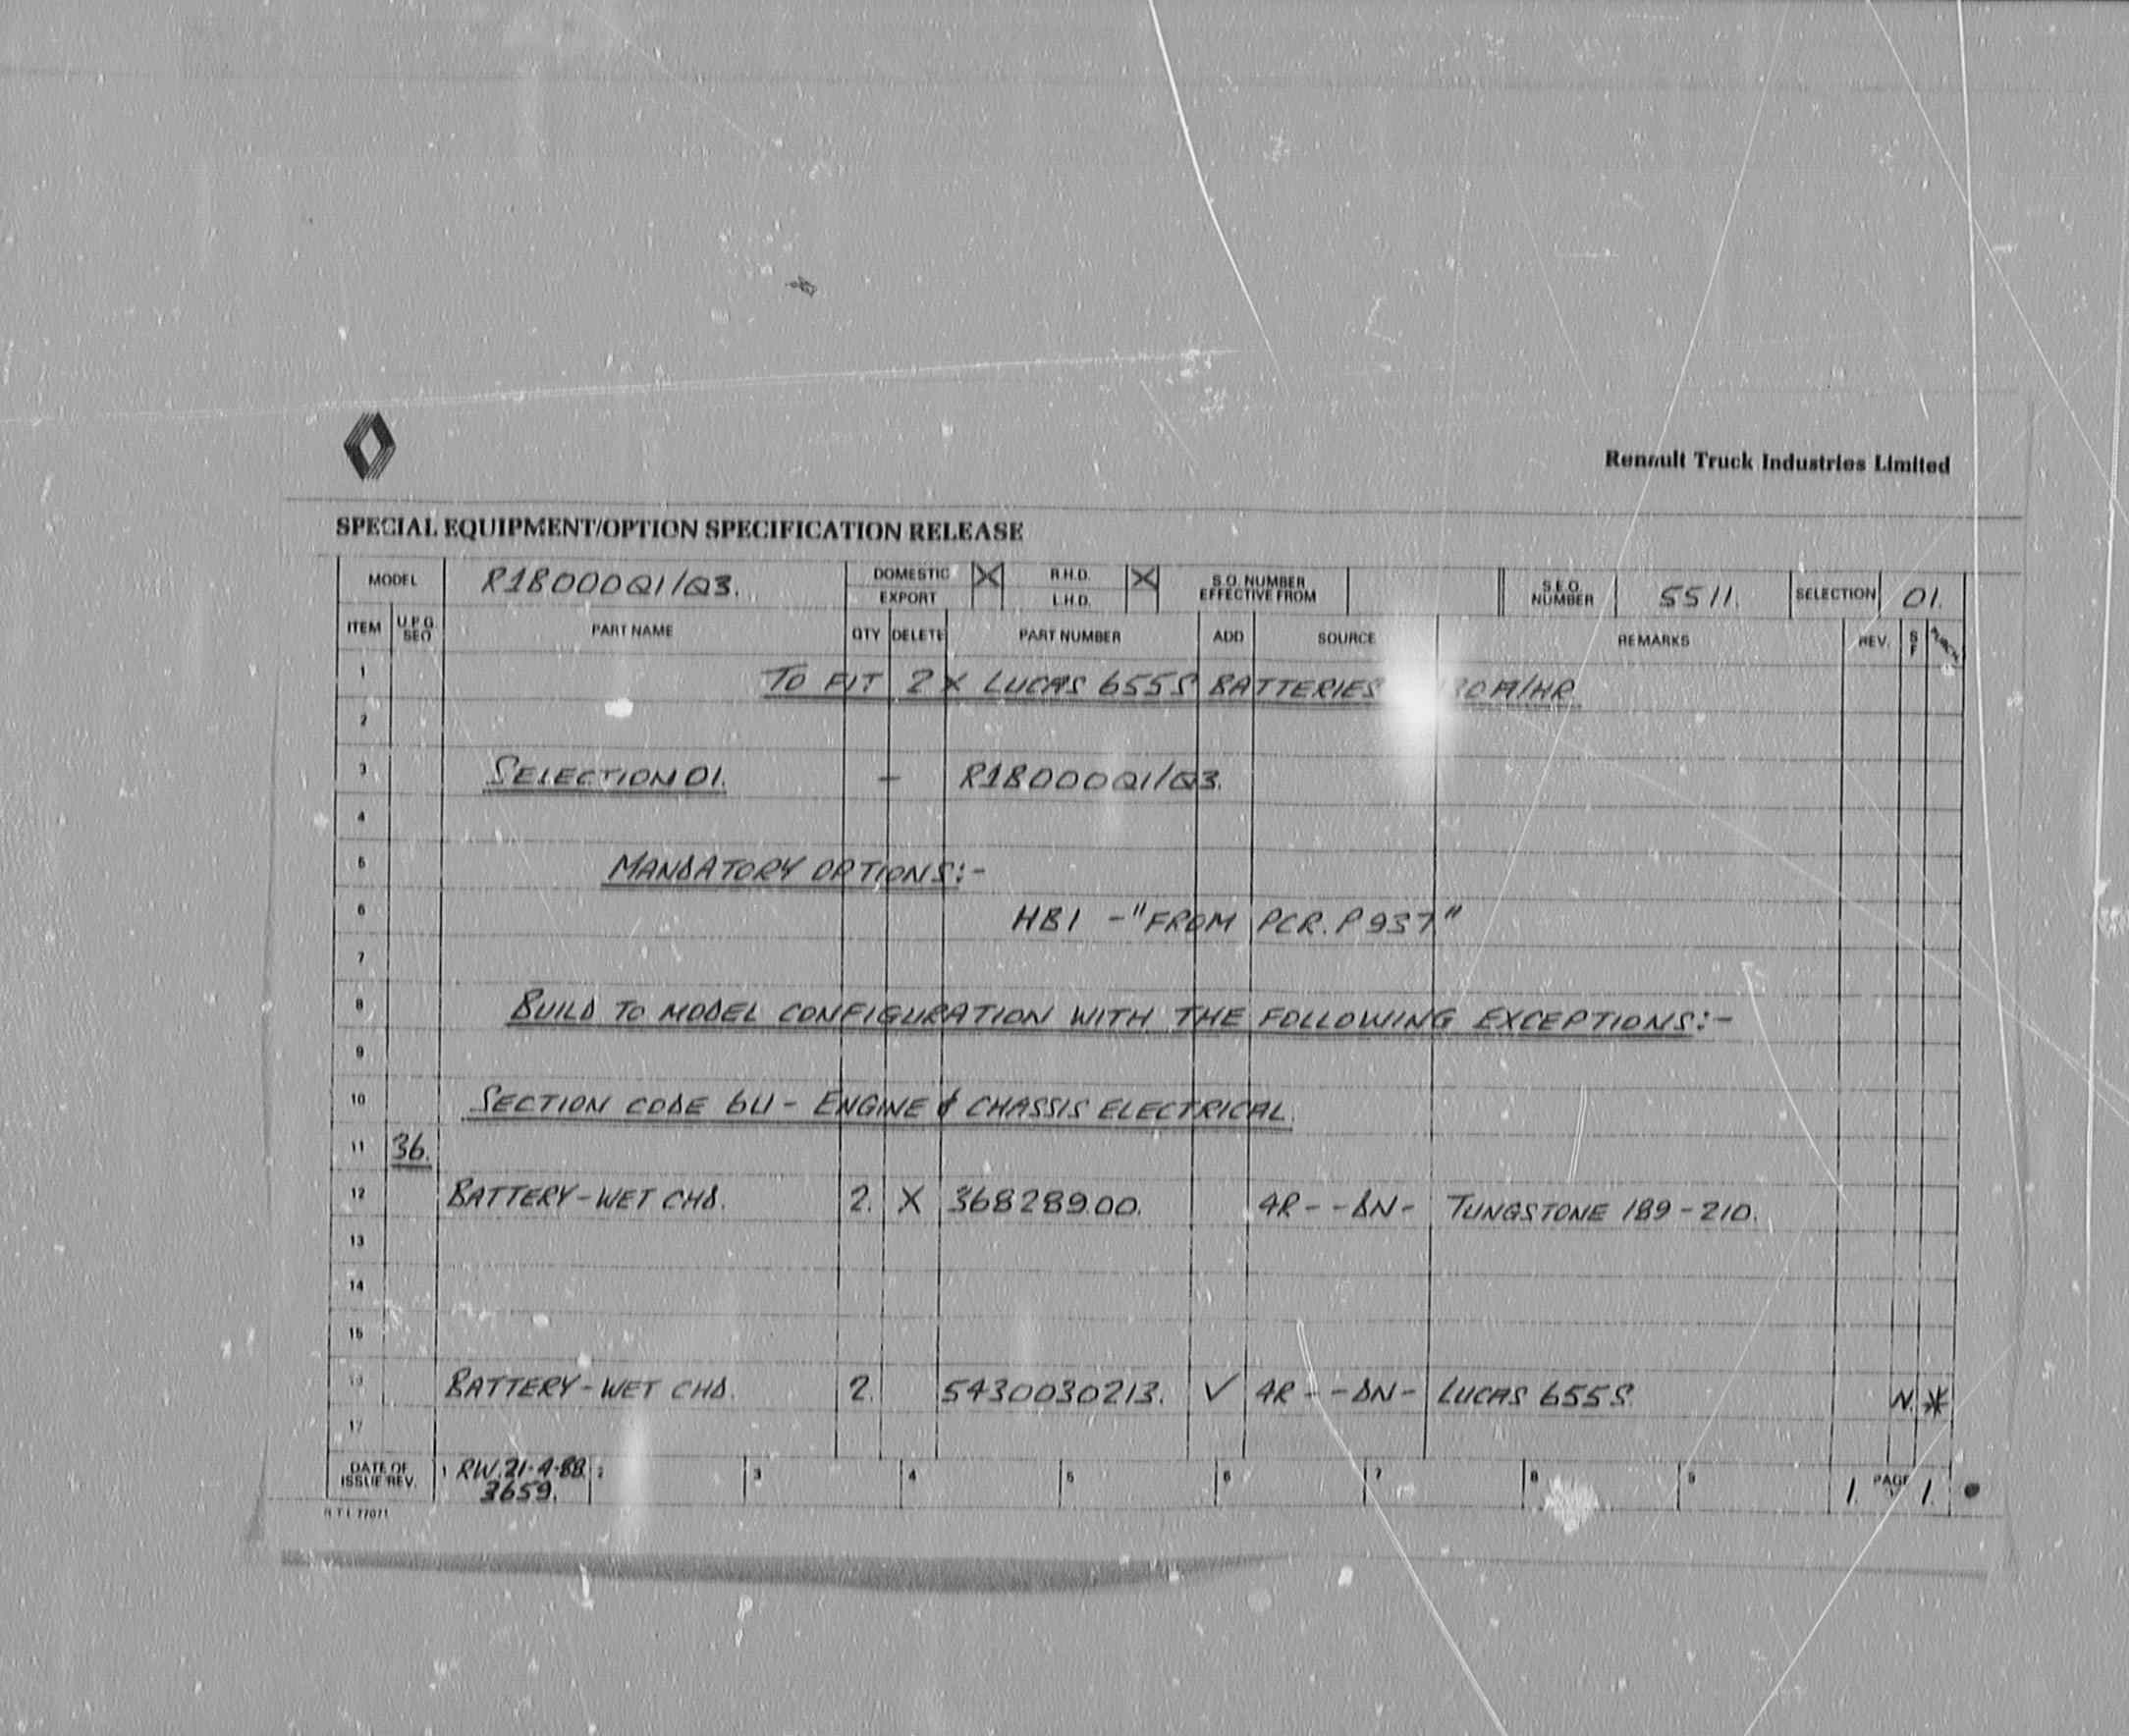 Renault Truck Industries Limited
SPECIAL EQUIPMENT/OPTION SPECIFICATION RELEASE
MODEL R1B000Q1/Q3. DOMESTIC X R.H.D. X S.O. NUMBER EFFECTIVE FROM S.E.O. NUMBER 5511. SELECTION 01.
EXPORT L.H.D.
ITEM U.P.G. SEQ PART NAME QTY DELETE PART NUMBER ADD SOURCE REMARKS REV. S F
1 TO FIT 2 X LUCAS 655S BATTERIES A/HR
2
3 SELECTION 01. - R1B000Q1/Q3.
4
5 MANDATORY OPTIONS:-
6 HB1 - "FROM PCR. P937"
7
8 BUILD TO MODEL CONFIGURATION WITH THE FOLLOWING EXCEPTIONS:-
9
10 SECTION CODE 6U - ENGINE & CHASSIS ELECTRICAL.
11 36.
12 BATTERY-WET CHD. 2. X 36828900. 4R--DN- TUNGSTONE 189-210.
13
14
15
16 BATTERY-WET CHD. 2. 5430030213. ✓ 4R--DN- LUCAS 655S. N. *
17
DATE OF ISSUE/REV. 1 RW.21-4-88 2 3 4 5 6 7 8 9 1. PAGE 1.
3659.
R T I 77071